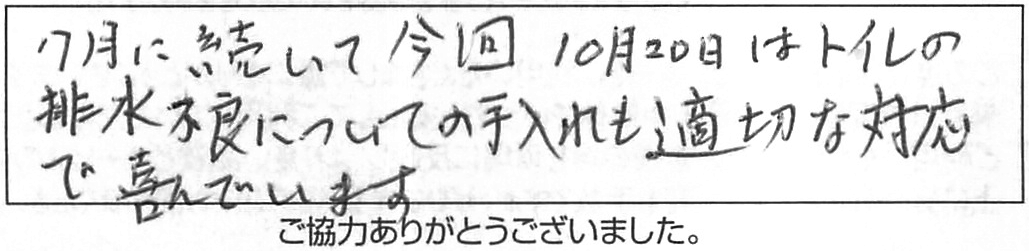 7月に続いて今回 10月20日はトイレの
排水不良についての手入れも適切な対応
で喜んでいます
ご協力ありがとうございました。